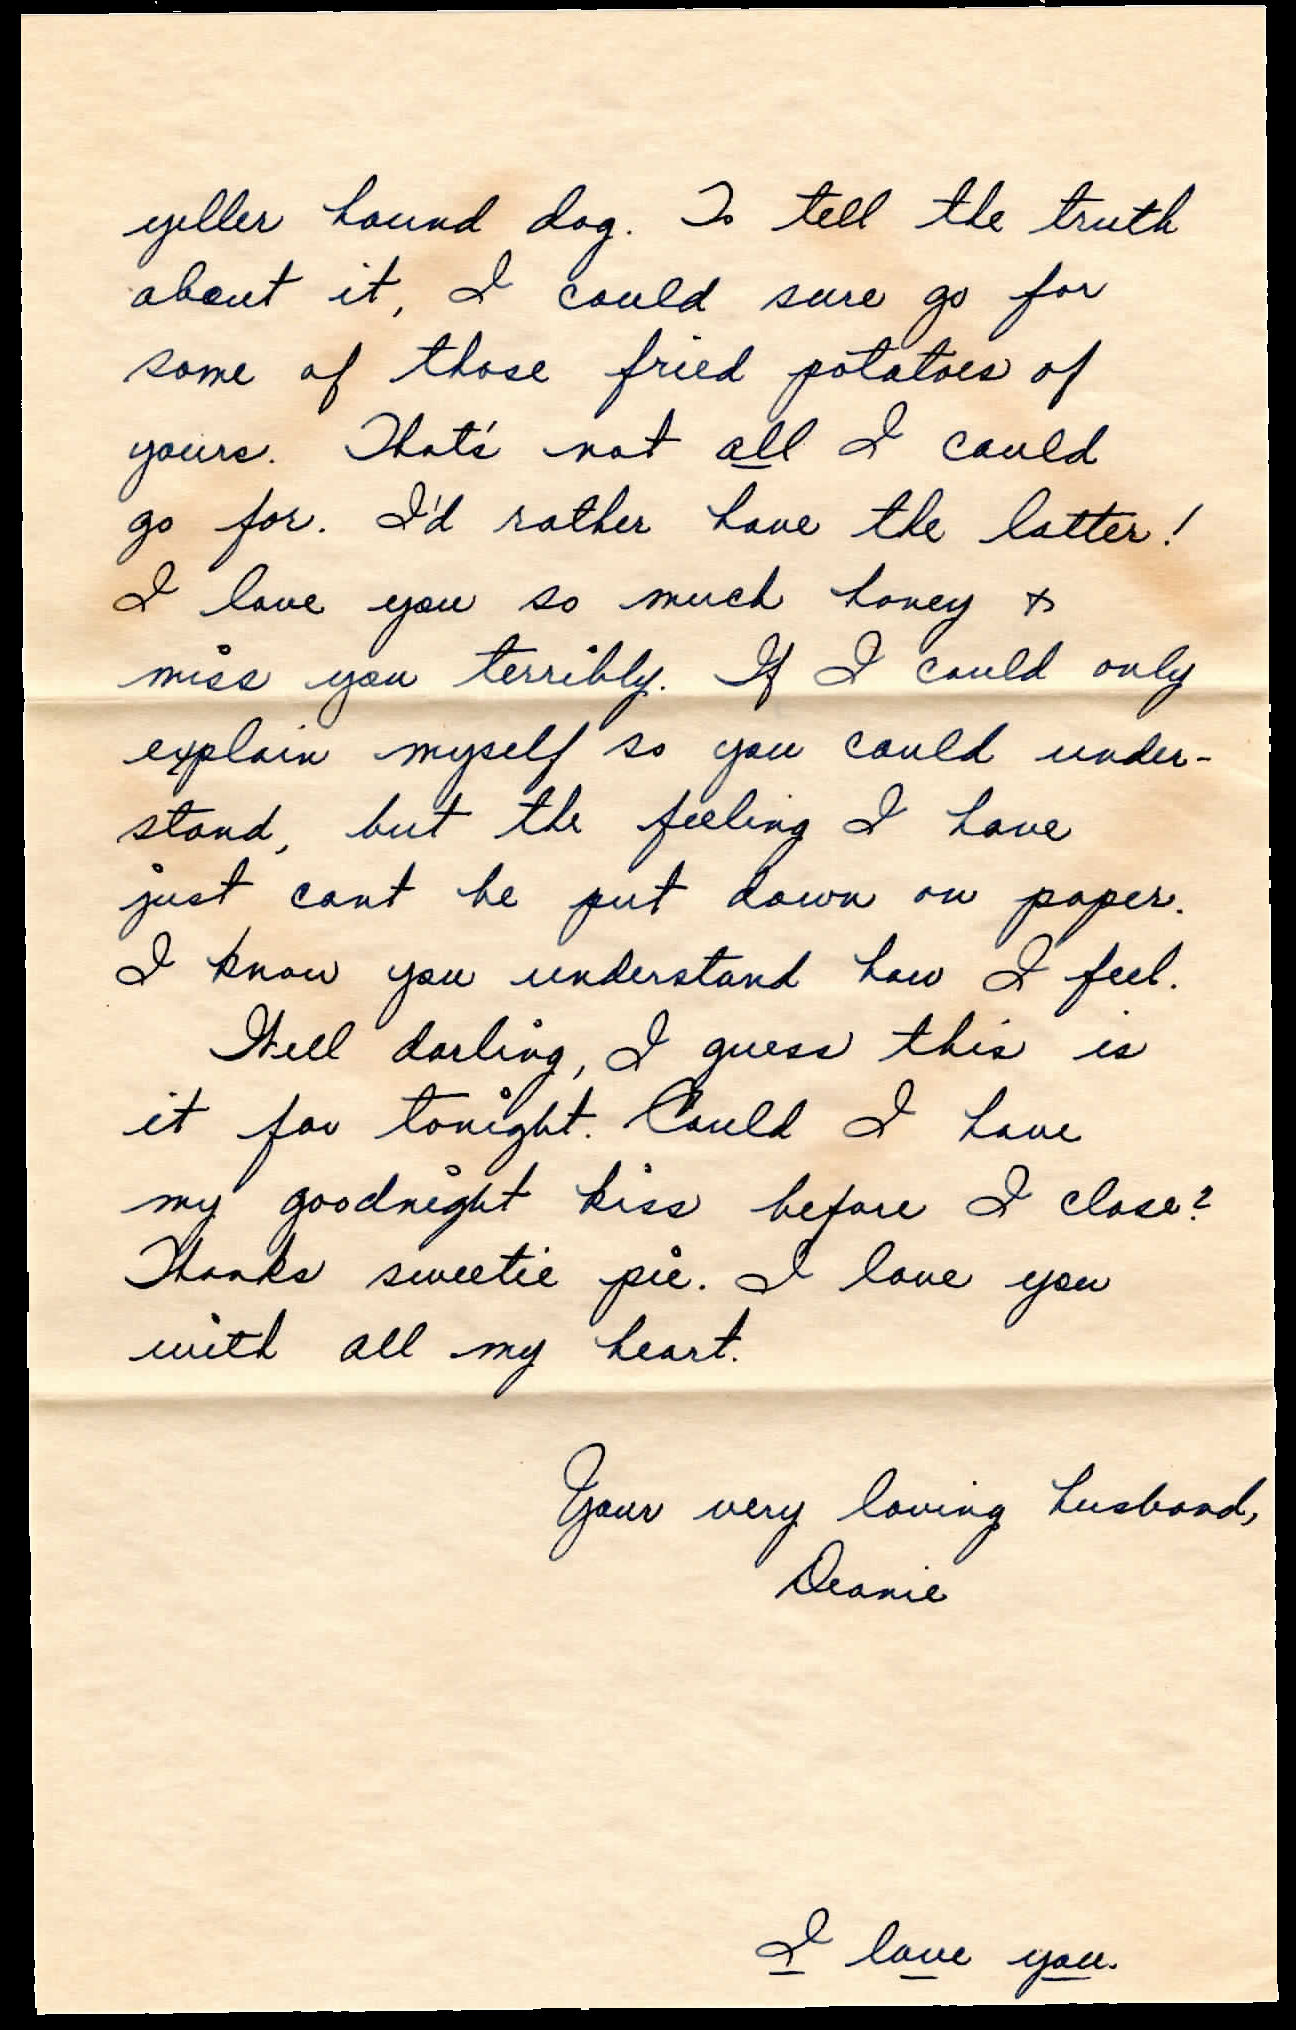 yeller hound dog. To tell the truth
about it, I could sure go for
some of those fried potatoes of
yours. That's not all I could
go for. I'd rather have the latter!
I love you so much honey &
miss you terribly. If I could only
explain myself so you could under-
stand, but the feeling I have
just cant be put down on paper.
I know you understand how I feel.
Well darling, I guess this is
it for tonight. Could I have
my goodnight kiss before I close?
Thanks sweetie pie. I love you
with all my heart.
Your very loving husband,
Deanie
I love you.